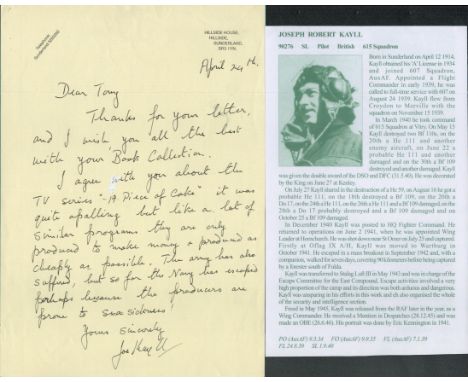 HILLSIDE HOUSE,
HILLSIDE,
SUNDERLAND,
April 24th.
Dear Tony
Thanks for your letter,
and I wish you all the best
with your Book Collection.
I agree with you about the
TV series "A Piece of Cake" it was
quite apalling but like a lot of
similar programs they are only
produced to make money & produced as
cheaply as possible. The army has also
suffered, but so far the Navy has escaped
perhaps because the producers are
prone to sea sickness
Yours sincerely
Joe Kayll
JOSEPH ROBERT KAYLL
90276 SL Pilot British 615 Squadron
Born in Sunderland on April 12 1914,
Kayll obtained his 'A' License in 1934
and joined 607 Squadron,
AuxAF. Appointed a Flight
Commander in early 1939, he was
called to full-time service with 607 on
August 24 1939. Kayll flew from
Croydon to Merville with the
squadron on November 15 1939.
In March 1940 he took command
of 615 Squadron at Vitry. On May 15
Kayll destroyed two Bf 110s, on the
20th a He 111 and another
enemy aircraft, on June 22 a
probable He 111 and another
damaged and on the 30th a Bf 109
destroyed and another damaged. Kayll
was given the double award of the DSO and DFC (31.5.40). He was decorated
by the King on June 27 at Kenley.
On July 27 Kayll shared in the destruction of a He 59, on August 16 he got a
probable He 111, on the 18th destroyed a Bf 109, on the 20th a
Do 17, on the 24th a He 111, on the 26th a He 111 and a Bf 109 damaged, on the
28th a Do 17 probably destroyed and a Bf 109 damaged and on October
25 a Bf 109 damaged.
In December 1940 Kayll was posted to HQ Fighter Command. He
returned to operations on June 2 1941, when he was appointed Wing
Leader at Hornchurch. He was shot down near St Omer on July 25 and captured.
Firstly at Oflag IX A/H, Kayll was moved to Warburg in
October 1941. He escaped in a mass breakout in September 1942 and, with a
companion, walked for seven days, covering
by a forester south of Fulda.
Kayll was transferred to Stalag Luft III in May 1942 and was in charge of the
Escape Committee for the East Compound. Escape activities involved a very
high proportion of the camp and its direction was both arduous and dangerous.
Kayll was unsparing in his efforts in this work and also organised the whole of
the security and intelligence section.
Freed in May 1945, Kayll was released from the RAF later in the year, as a
Wing Commander. He received a Mention in Despatches (28.12.45) and was
made an OBE (26.6.46). His portrait was done by Eric Kennington in 1941.
PO (AuxAF) 9.3.34 FO (AuxAF) 9.9.35 FL (AuxAF) 7.1.39
FL 24.8.39 SL 1.9.40